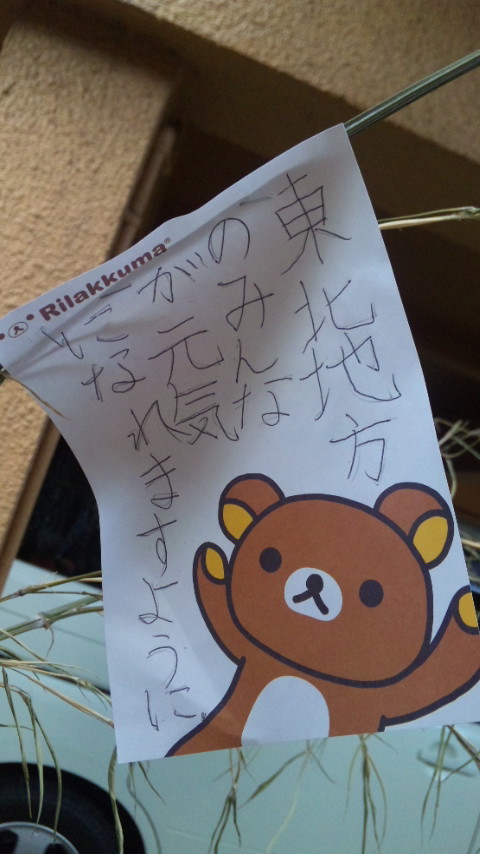 Rilakkuma®
東北地方
のみんな
が元気
になれますように